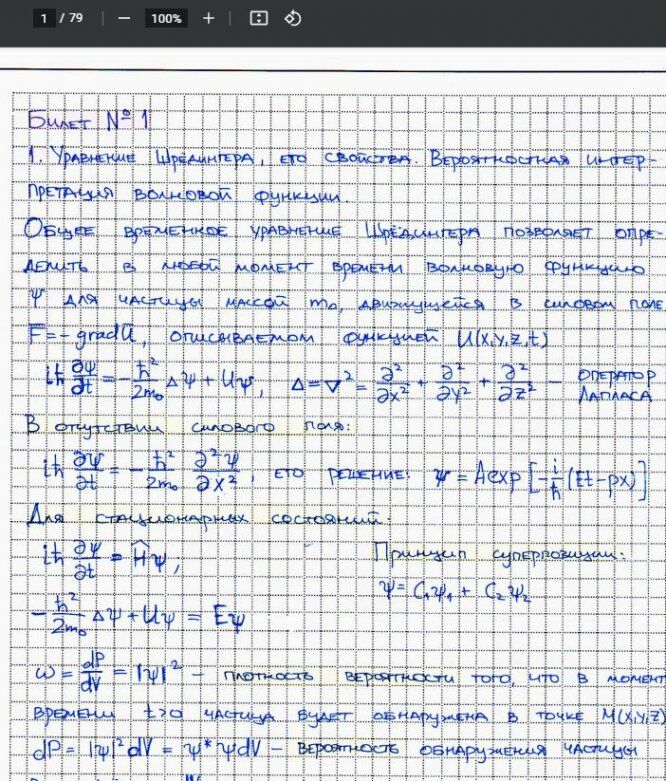 1 / 79 — 100% +
Билет №1
1. Уравнение Шрёдингера, его свойства. Вероятностная интер-
претация волновой функции.
Общее временное уравнение Шрёдингера позволяет опре-
делить в любой момент времени волновую функцию
Ψ для частицы массой m₀, движущейся в силовом поле
F = - gradU, описываемом функцией U(x,y,z,t)
iħ ∂ψ/∂t = - ħ²/2m₀ Δψ + Uψ, Δ = ∇² = ∂²/∂x² + ∂²/∂y² + ∂²/∂z² — оператор Лапласа
В отсутствии силового поля:
iħ ∂ψ/∂t = - ħ²/2m₀ ∂²ψ/∂x², его решение: ψ = Aexp[-i/ħ(Et-px)]
Для стационарных состояний:
iħ ∂ψ/∂t = Ĥψ, Принцип суперпозиции:
ψ = C₁ψ₁ + C₂ψ₂
- ħ²/2m₀ Δψ + Uψ = Eψ
ω = dP/dV = |ψ|² – плотность вероятности того, что в момент
времени t>0 частица будет обнаружена в точке M(x,y,z)
dP = |ψ|²dV = ψ*ψdV – вероятность обнаружения частицы